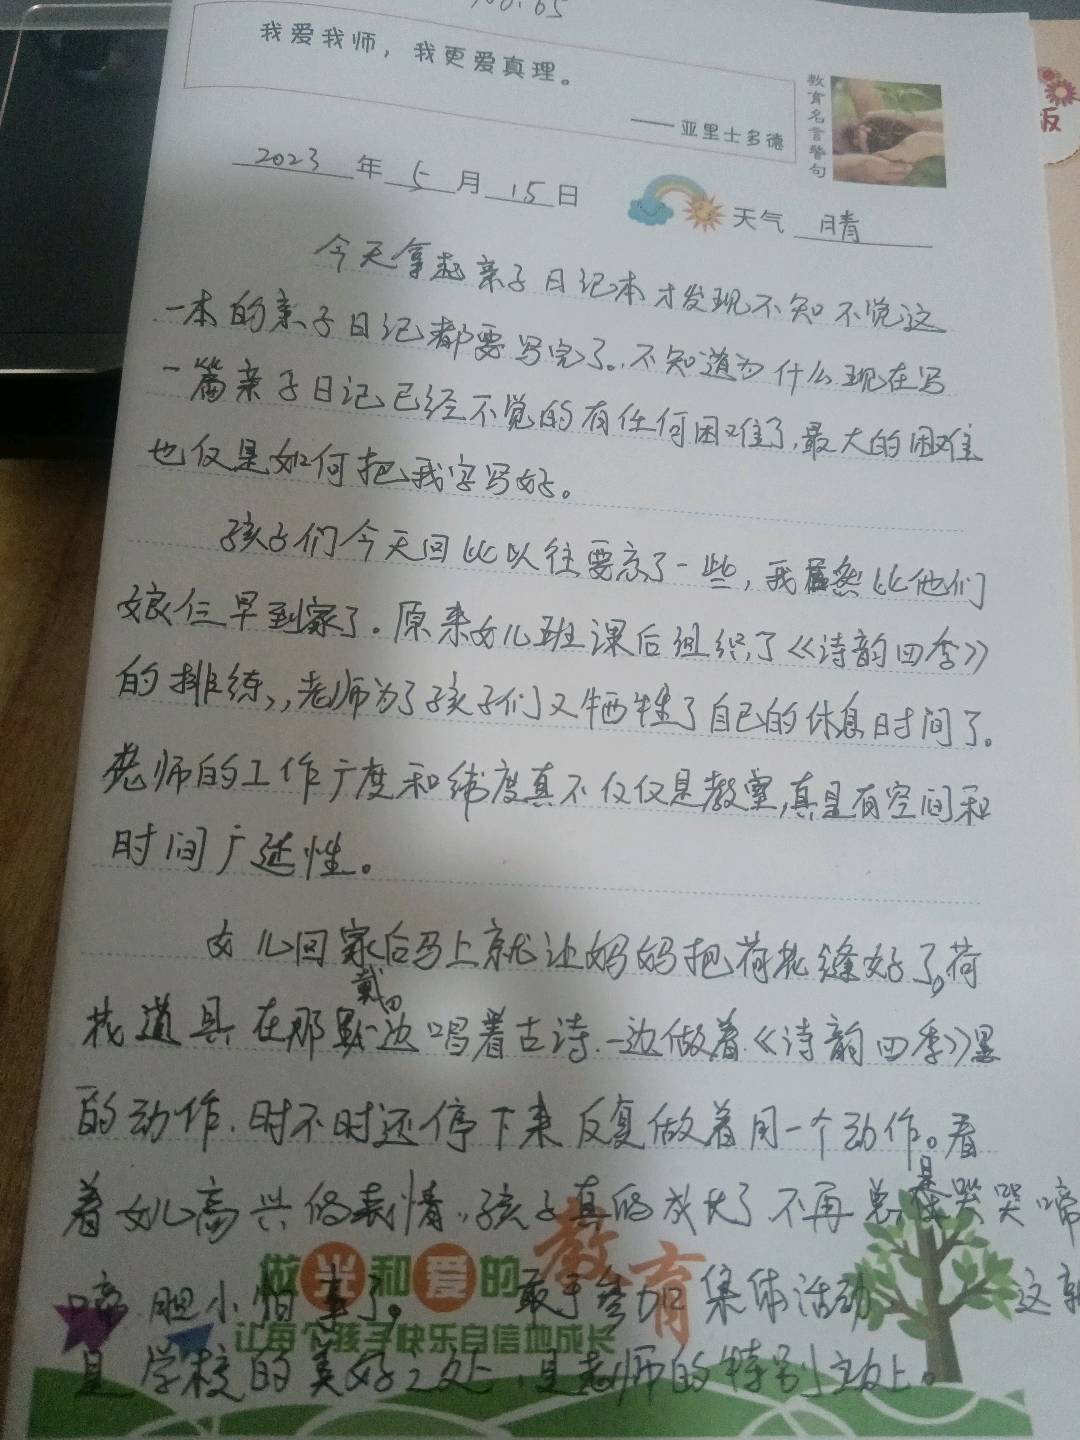 No.65
我爱我师，我更爱真理。
——亚里士多德
教育名言警句
2023年5月15日
天气 晴
今天拿起亲子日记本才发现不知不觉这
一本的亲子日记都要写完了。不知道为什么现在写
一篇亲子日记已经不觉的有任何困难了，最大的困难
也仅是如何把我字写好。
孩子们今天回比以往要忘了一些，我居然比他们
娘仨早到家了。原来女儿班课后组织了《诗韵四季》
的排练，老师为了孩子们又牺牲了自己的休息时间了。
老师的工作广度和纬度真不仅仅是教室，真是有空间和
时间广延性。
女儿回家后马上就让妈妈把荷花缝好了，荷
花道具在那戴一边唱着古诗，一边做着《诗韵四季》里
的动作，时不时还停下来反复做着同一个动作。看
着女儿高兴的表情，孩子真的成长了不再总是哭哭啼
啼胆小怕事了。敢于参加集体活动 这就
是学校的美好之处，是老师的特别之处。
做光和爱的教育
让每个孩子快乐自信地成长
版